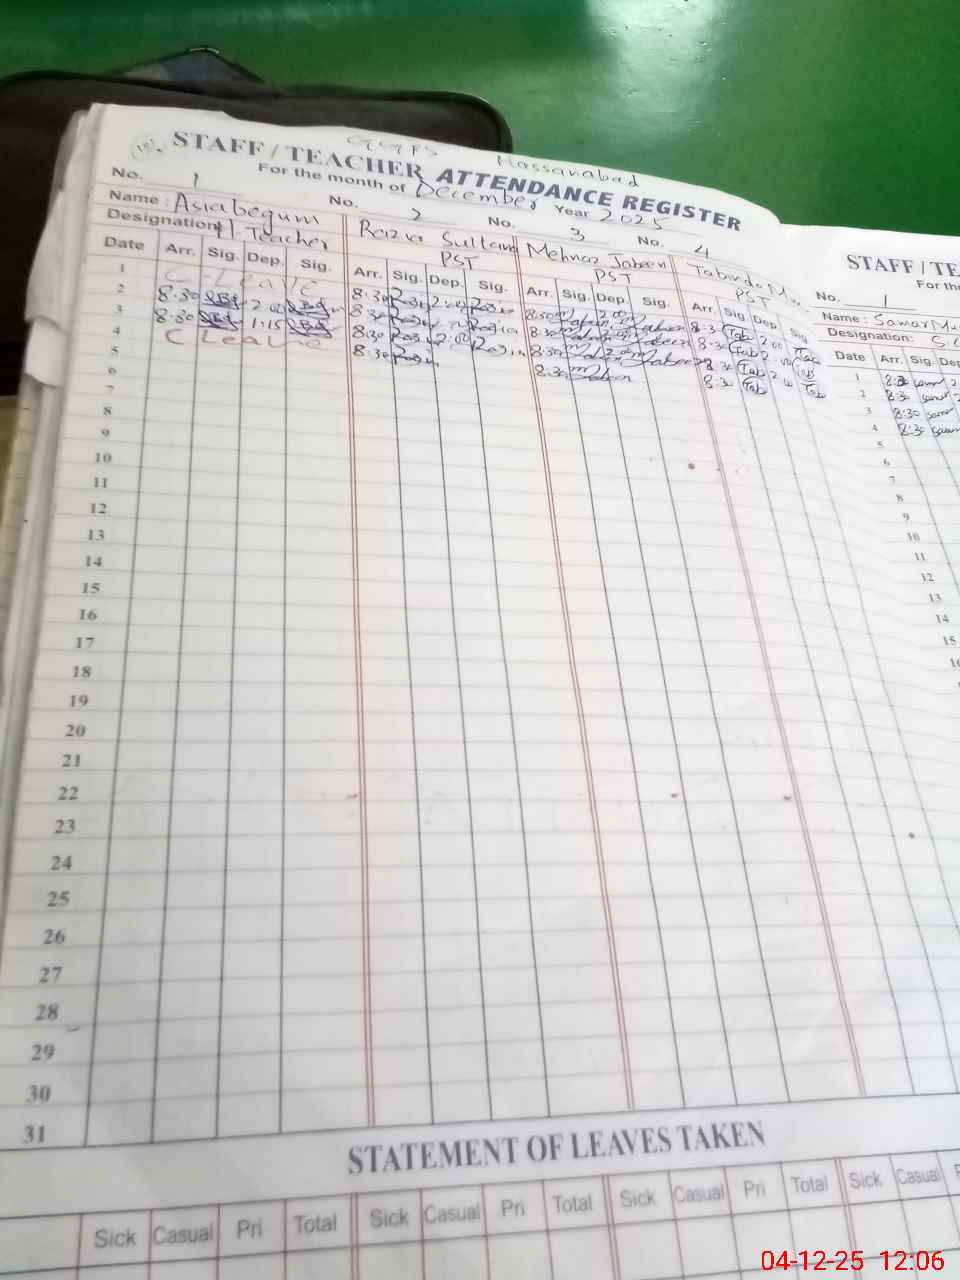 GGPS Hassanabad
STAFF / TEACHER ATTENDANCE REGISTER
For the month of December Year 2025
No. 1 No. 2 No. 3 No. 4
Name : Asia begum Razia Sultana Mehnaz Jabeen
Designation H. Teacher PST PST PST
Date Arr. Sig. Dep. Sig. Arr. Sig. Dep. Sig. Arr. Sig. Dep. Sig. Arr. Sig. Dep. Sig
1 C Leave 8:30 2:00 8:30 2:00 8:30 Tab 2:00 Tab
2 8:30 2:00 8:30 8:30 8:30 Tab 2:00 Tab
3 8:30 1:15 8:30 2:00 8:30 8:30 Tab 2:00 Tab
4 C Leave 8:30 8:30 8:30 Tab
5
6
7
8
9
10
11
12
13
14
15
16
17
18
19
20
21
22
23
24
25
26
27
28
29
30
31
STATEMENT OF LEAVES TAKEN
Sick Casual Pri Total Sick Casual Pri Total Sick Casual Pri Total Sick Casual
STAFF / TEA
For the
No. 1
Name : Samar
Designation:
Date Arr. Sig. Dep
1 8:30 Samr 2
2 8:30 Samr 2
3 8:30 Samr
4 8:30 Samr
5
6
7
8
9
10
11
12
13
14
15
04-12-25 12:06